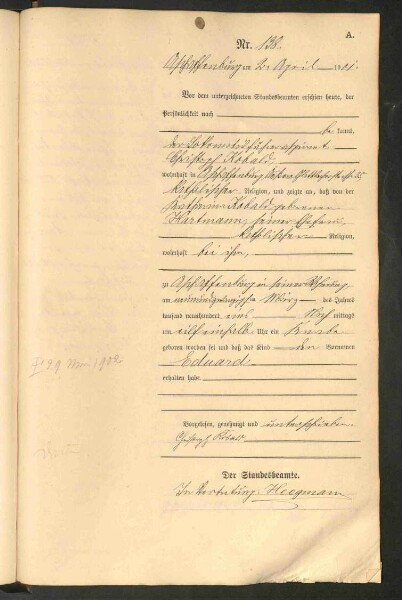 A.
Nr. 138.
Aschaffenburg am 2. April 1901.
Vor dem unterzeichneten Standesbeamten erschien heute, der
Persönlichkeit nach
be kannt,
der
Christoph Kobald,
wohnhaft in Aschaffenburg
katholischer Religion, und zeigte an, daß von der
Kobald gebornen
Hartmann, seiner Ehefrau,
katholischer Religion,
wohnhaft bei ihm,
zu Aschaffenburg in seiner Wohnung,
am neunundzwanzigsten März des Jahres
tausend neunhundert eins Nach mittags
um elf einhalb Uhr ein Knabe
geboren worden sei und daß das Kind den Vornamen
Eduard
erhalten habe
Vorgelesen, genehmigt und unterschrieben
Christoph Kobald
Der Standesbeamte.
In Vertretung: Hegmann